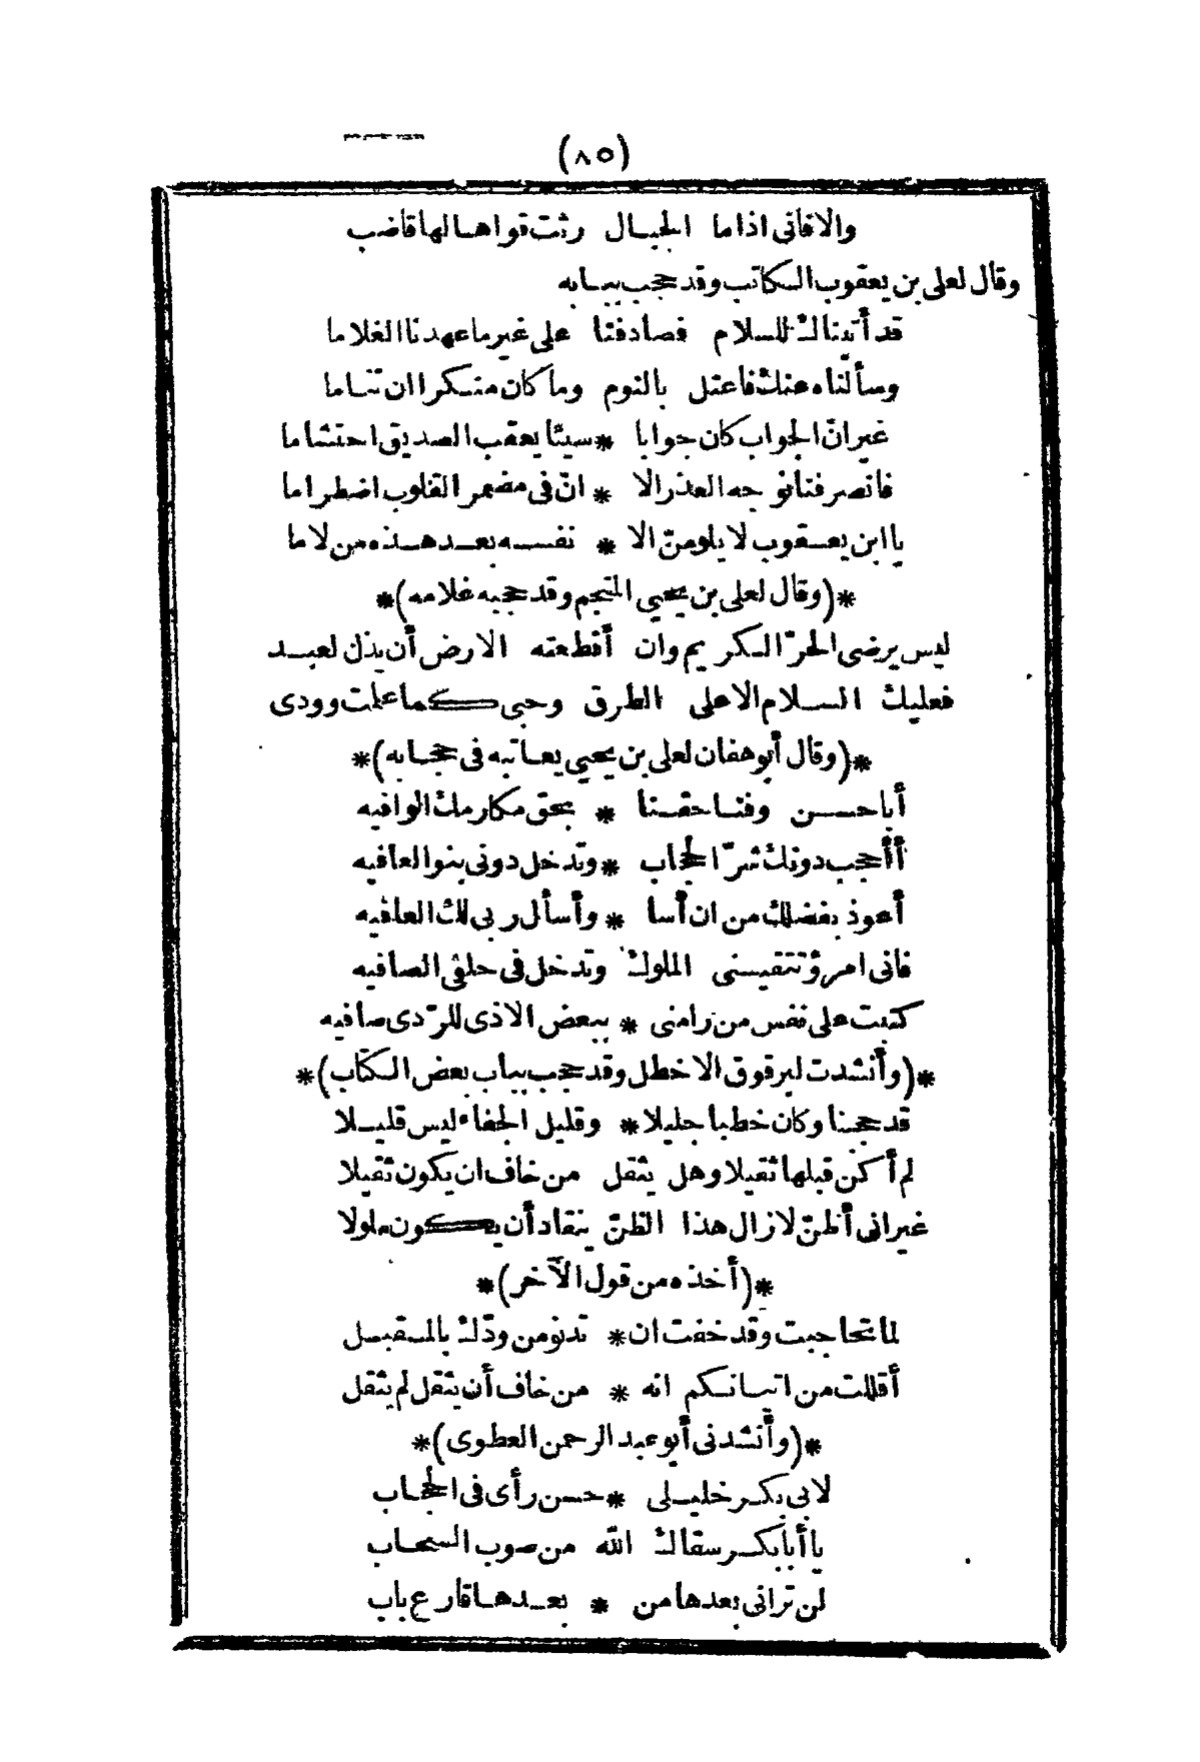 (٨٥)
والا فانى اذا ما الحبال رثت قواها لها قاضب
وقال لعلى بن يعقوب الكاتب وقد حجب ببابه
قد أتيناك للسلام فصادفنا على غير ما عهدنا الغلاما
وسألناه عنك فاعتل بالنوم وما كان منكرا ان تناما
غير انّ الجواب كان جوابا * سيئا يعقب الصديق احتشاما
فانصرفنا نوجه العذر الا * انّ فى مضمر القلوب اضطراما
يا ابن يعقوب لا يلومنّ الا * نفسه بعد هذه من لاما
*(وقال لعلى بن يحيى المنجم وقد حجبه غلامه)*
ليس يرضى الحرّ الكريم وان أقطعته الارض أن يذل لعبد
فعليك السلام الا على الطرق وحبى كما علمت وودى
*(وقال أبو هفان لعلى بن يحيى يعاتبه فى حجابه)*
أبا حسن وفنا حقنا * بحق مكارمك الوافيه
أأحجب دونك شرّ الحجاب * وتدخل دونى بنو العافيه
أعوذ بفضلك من ان أسا * وأسأل ربى لك العافيه
فانى امرؤ تتقينى الملوك وتدخل فى حلقى الصافيه
كتبت على نفس من رامنى * ببعض الاذى للرّدى صافيه
*(وأنشدت لبرقوق الاخطل وقد حجب بباب بعض الكتاب)*
قد حجبنا وكان خطبا جليلا * وقليل الجفاء ليس قليلا
لم أكن قبلها ثقيلا وهل يثقل من خاف ان يكون ثقيلا
غير انى أظنّ لا زال هذا الظنّ ينقاد أن يكون ملولا
*(أخذه من قول الآخر)*
لما تحاجبت وقد خفت ان * تدنو من ودّك بالمقبل
أقللت من اتيانكم انه * من خاف أن يثقل لم يثقل
*(وأنشدنى أبو عبد الرحمن العطوى)*
لابى بكر خليلى * حسن رأى فى الحجاب
يا أبا بكر سقاك الله من صوب السحاب
لن ترانى بعدها من * بعدها قارع باب